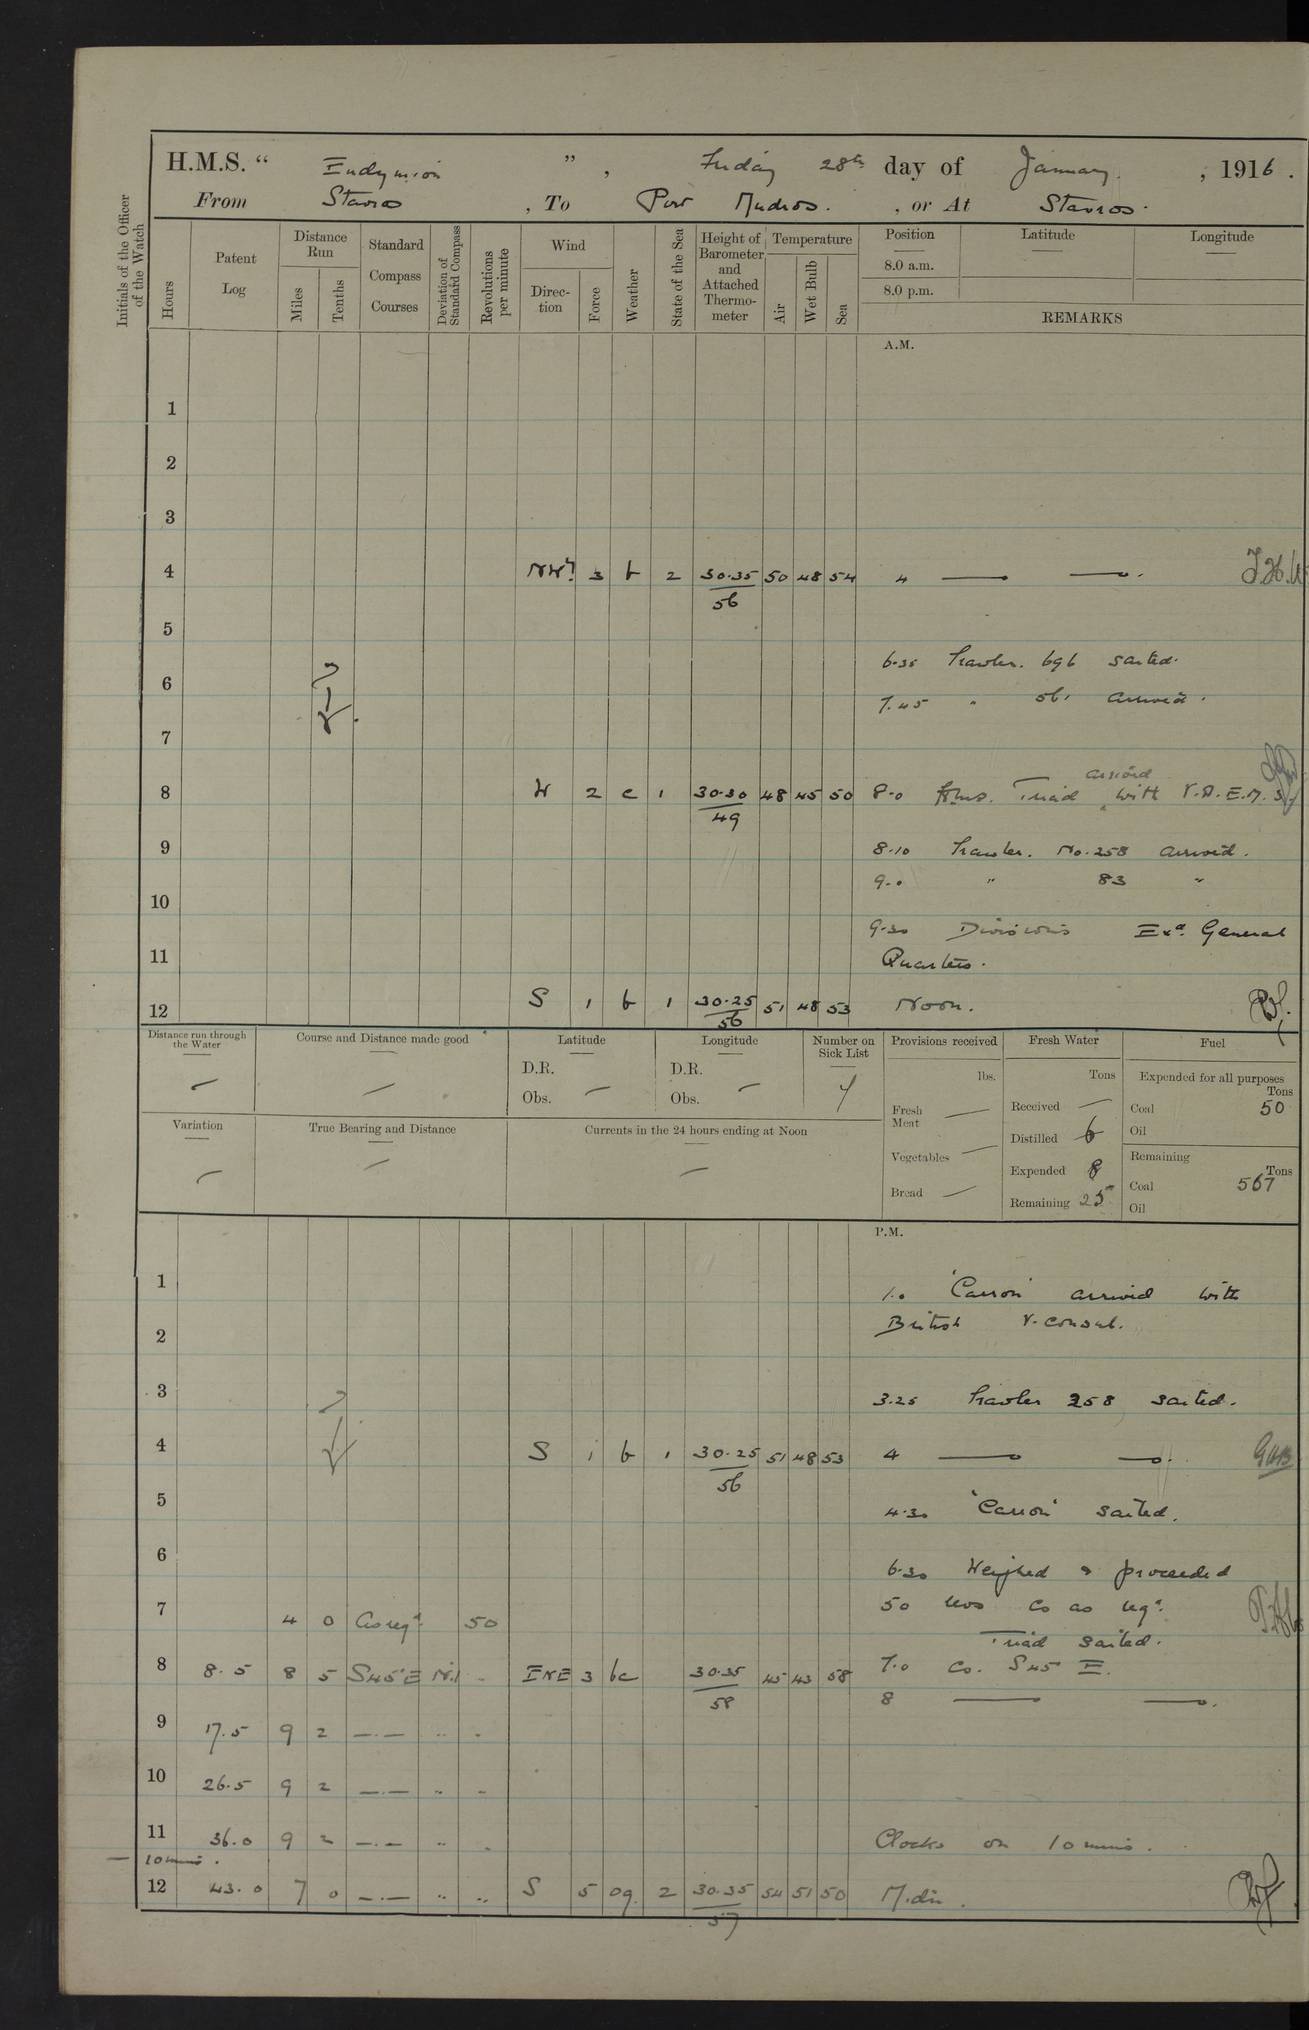 H.M.S. “ Endymion ” , Friday 28th day of January , 1916 .
From Stavros , To Port Mudros . , or At Stavros .
Initials of the Officer of the Watch
Hours
Patent Log
Distance Run
Miles
Tenths
Standard Compass Courses
Deviation of Standard Compass
Revolutions per minute
Wind
Direction
Force
Weather
State of the Sea
Height of Barometer and Attached Thermometer
Temperature
Air
Wet Bulb
Sea
Position
8.0 a.m.
8.0 p.m.
Latitude
Longitude
REMARKS
A.M.
1
2
3
4 3 b 2 30.35 50 48 54 4
56
5
6.35 Trawler. 696 sailed.
6
7.45 " 561 arrived.
7
arrived
8 W 2 c 1 30.30 48 45 50 8.0 H.M.S. Triad with V.A.E.M.S.
49
9 8.10 Trawler. No. 258 arrived.
9.0 " 83 "
10
9.30 Divisions Exd. General
11 Quarters.
12 S 1 b 1 30.25 51 48 53 Noon.
56
Distance run through the Water
Course and Distance made good
Latitude
D.R.
Obs.
Longitude
D.R.
Obs.
Number on Sick List
4
Variation
True Bearing and Distance
Currents in the 24 hours ending at Noon
Provisions received
lbs.
Fresh Meat
Vegetables
Bread
Fresh Water
Tons
Received
Distilled 6
Expended 8
Remaining 25
Fuel
Expended for all purposes
Tons
Coal 50
Oil
Remaining
Tons
Coal 567
Oil
P.M.
1 1.0 'Carron' arrived with
2 British V. Consul.
3 3.25 Trawler 258 sailed.
4 S 1 b 1 30.25 51 48 53 4
56
5 4.30 'Carron' sailed.
6 6.30 Weighed & proceeded
7 4 0 Co as reqd. 50 50 revs Co as reqd.
Triad sailed.
8 8.5 8 5 S45°E Nil - ENE 3 bc 30.35 45 43 58 7.0 Co. S45E.
58
8
9 17.5 9 2 —.— " "
10 26.5 9 2 —.— " "
11 36.0 9 2 —.— " " Clocks on 10 mins.
— 10 mins.
12 43.0 7 0 —.— " " S 5 og. 2 30.35 54 51 50 Midn.
57